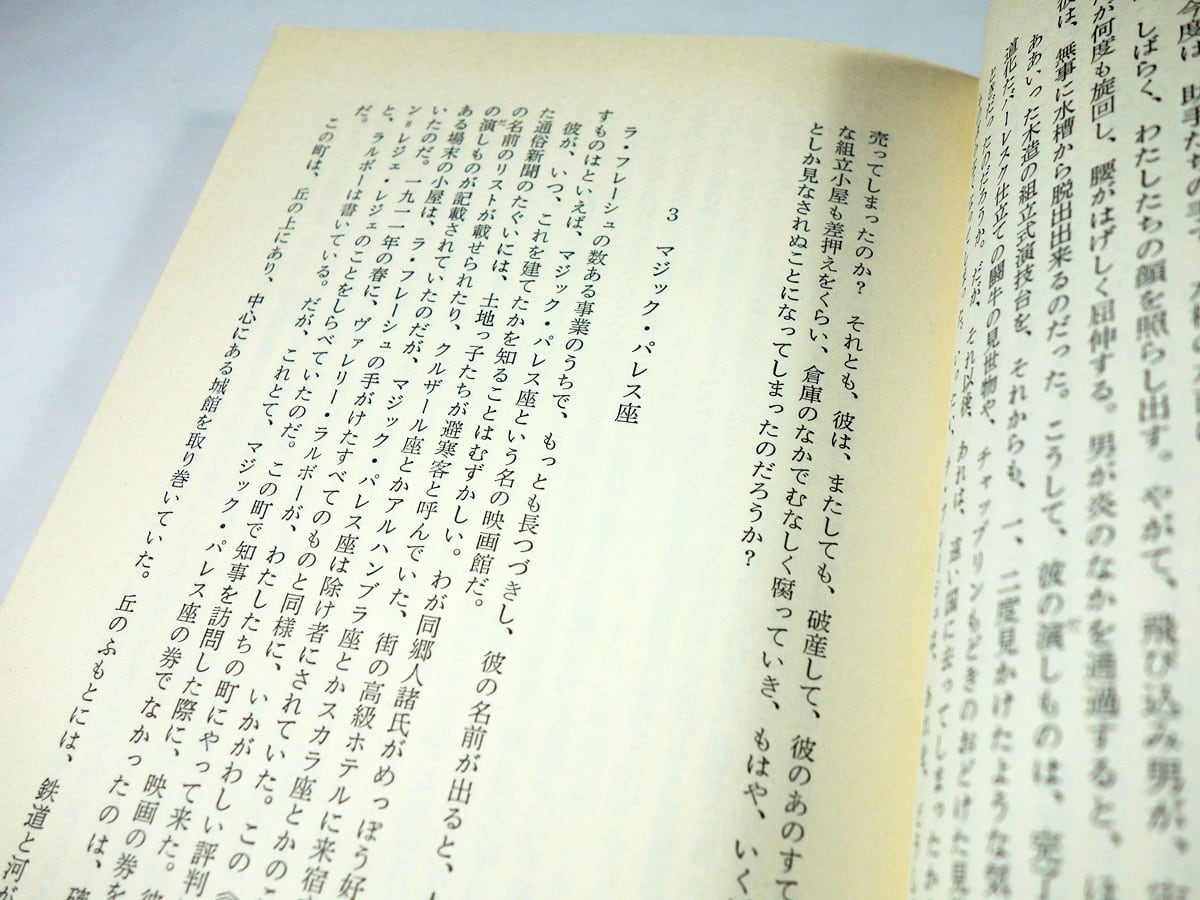 今度は、助手たちの手で、
しばらく、わたしたちの顔を照らし出す。やがて、飛び込み男が、
が何度も旋回し、腰がはげしく屈伸する。男が炎のなかを通過すると、ほ
彼は、無事に水槽から脱出出来るのだった。こうして、彼の演しものは、完了
ああいった木造の組立式演技台を、それからも、一、二度見かけたような気
道化たバーレスク仕立ての闘牛の見世物や、チャップリンもどきのおどけた見
だが、それ以後、われは、遠い国に去ってしまったか
売ってしまったのか？　それとも、彼は、またしても、破産して、彼のあのすて
な組立小屋も差押えをくらい、倉庫のなかでむなしく腐っていき、もはや、いく
としか見なされぬことになってしまったのだろうか？
3　マジック・パレス座
ラ・フレーシュの数ある事業のうちで、もっとも長つづきし、彼の名前が出ると、
すものはといえば、マジック・パレス座という名の映画館だ。
彼が、いつ、これを建てたかを知ることはむずかしい。わが同郷人諸氏がめっぽう好
た通俗新聞のたぐいには、土地っ子たちが避寒客と呼んでいた、街の高級ホテルに来宿
の名前のリストが載せられたり、クルザール座とかアルハンブラ座とかスカラ座とかのこ
の演しものが記載されていたのだが、マジック・パレス座は除け者にされていた。この《
ある場末の小屋は、ラ・フレーシュの手がけたすべてのものと同様に、いかがわしい評判
いたのだ。一九一一年の春に、ヴァレリー・ラルボーが、わたしたちの町にやって来た。彼
ン＝レジェ・レジェのことをしらべていたのだ。この町で知事を訪問した際に、映画の券を
と、ラルボーは書いている。だが、これとて、マジック・パレス座の券でなかったのは、確
だ。
この町は、丘の上にあり、中心にある城館を取り巻いていた。丘のふもとには、鉄道と河が